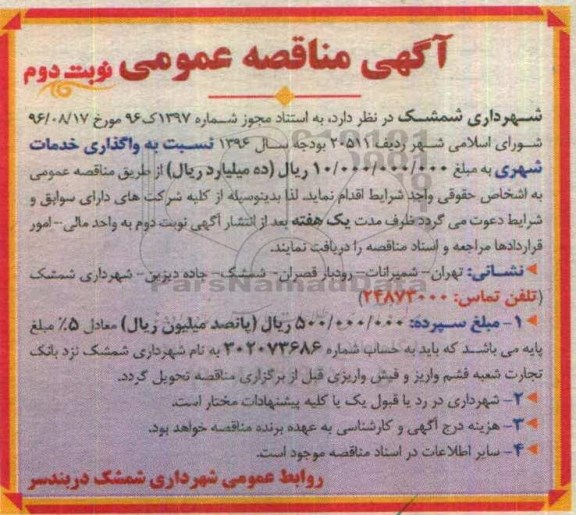 آگهی مناقصه عمومی نوبت دوم
شهرداری شمشک در نظر دارد، به استناد مجوز شماره ۱۳۹۷ک۹۶ مورخ ۹۶/۰۸/۱۷
شورای اسلامی شهر ردیف ۲۰۵۱۱ بودجه سال ۱۳۹۶ نسبت به واگذاری خدمات
شهری به مبلغ ۱۰/۰۰۰/۰۰۰/۰۰۰ ریال (ده میلیارد ریال) از طریق مناقصه عمومی
به اشخاص حقوقی واجد شرایط اقدام نماید. لذا بدینوسیله از کلیه شرکت های دارای سوابق و
شرایط دعوت می گردد ظرف مدت یک هفته بعد از انتشار آگهی نوبت دوم به واحد مالی-- امور
قراردادها مراجعه و اسناد مناقصه را دریافت نمایند.
نشانی: تهران- شمیرانات- رودبار قصران- شمشک- جاده دیزین- شهرداری شمشک
(تلفن تماس: ۲۴۸۷۴۰۰۰)
۱- مبلغ سپرده: ۵۰۰/۰۰۰/۰۰۰ ریال (پانصد میلیون ریال) معادل ۵٪ مبلغ
پایه می باشد که باید به حساب شماره ۳۰۲۰۷۳۶۸۶ به نام شهرداری شمشک نزد بانک
تجارت شعبه فشم واریز و فیش واریزی قبل از برگزاری مناقصه تحویل گردد.
۲- شهرداری در رد یا قبول یک یا کلیه پیشنهادات مختار است.
۳- هزینه درج آگهی و کارشناسی به عهده برنده مناقصه خواهد بود.
۴- سایر اطلاعات در اسناد مناقصه موجود است.
روابط عمومی شهرداری شمشک دربندسر
ParsNamadData